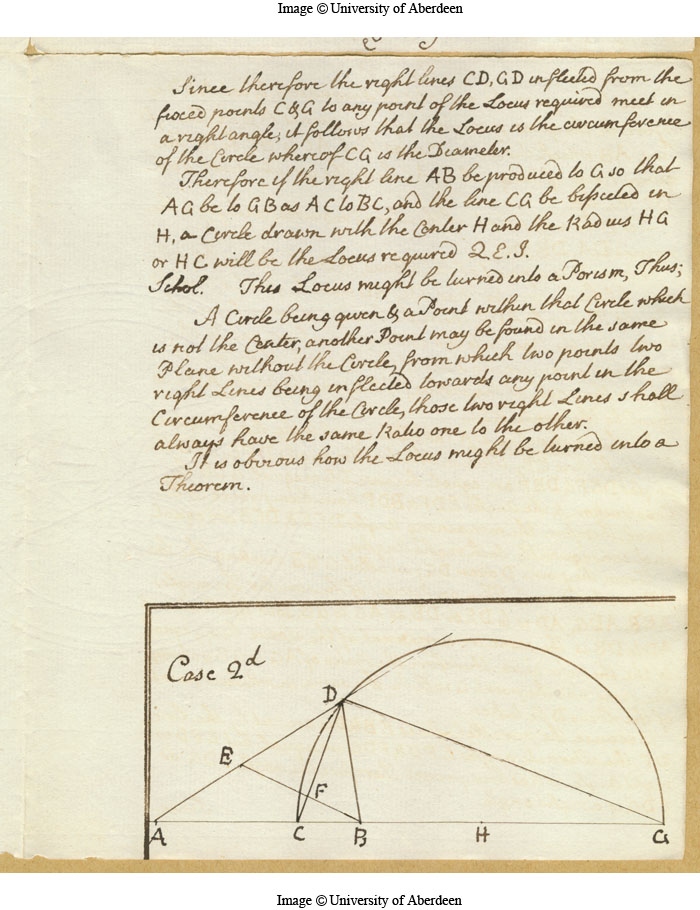 Image © University of Aberdeen
Since therefore the right lines CD, GD inflected from the
fixed points C & G to any point of the Locus required meet in
a right angle; it follows that the Locus is the circumference
of the Circle whereof CG is the Diameter.
Therefore if the right line AB be produced to G so that
AG be to GB as AC to BC, and the line CG be bissected in
H, a Circle drawn with the Center H and the Radius HG
or HC will be the Locus required Q.E.I.
Schol. This Locus might be turned into a Porism, Thus;
A Circle being given & a Point within that Circle which
is not the Center, another Point may be found in the same
Plane without the Circle, from which two points two
right Lines being inflected towards any point in the
Circumference of the Circle, those two right Lines shall
always have the same Ratio one to the other.
It is obvious how the Locus might be turned into a
Theorem.
Case 2d
D
E
F
A C B H G
Image © University of Aberdeen